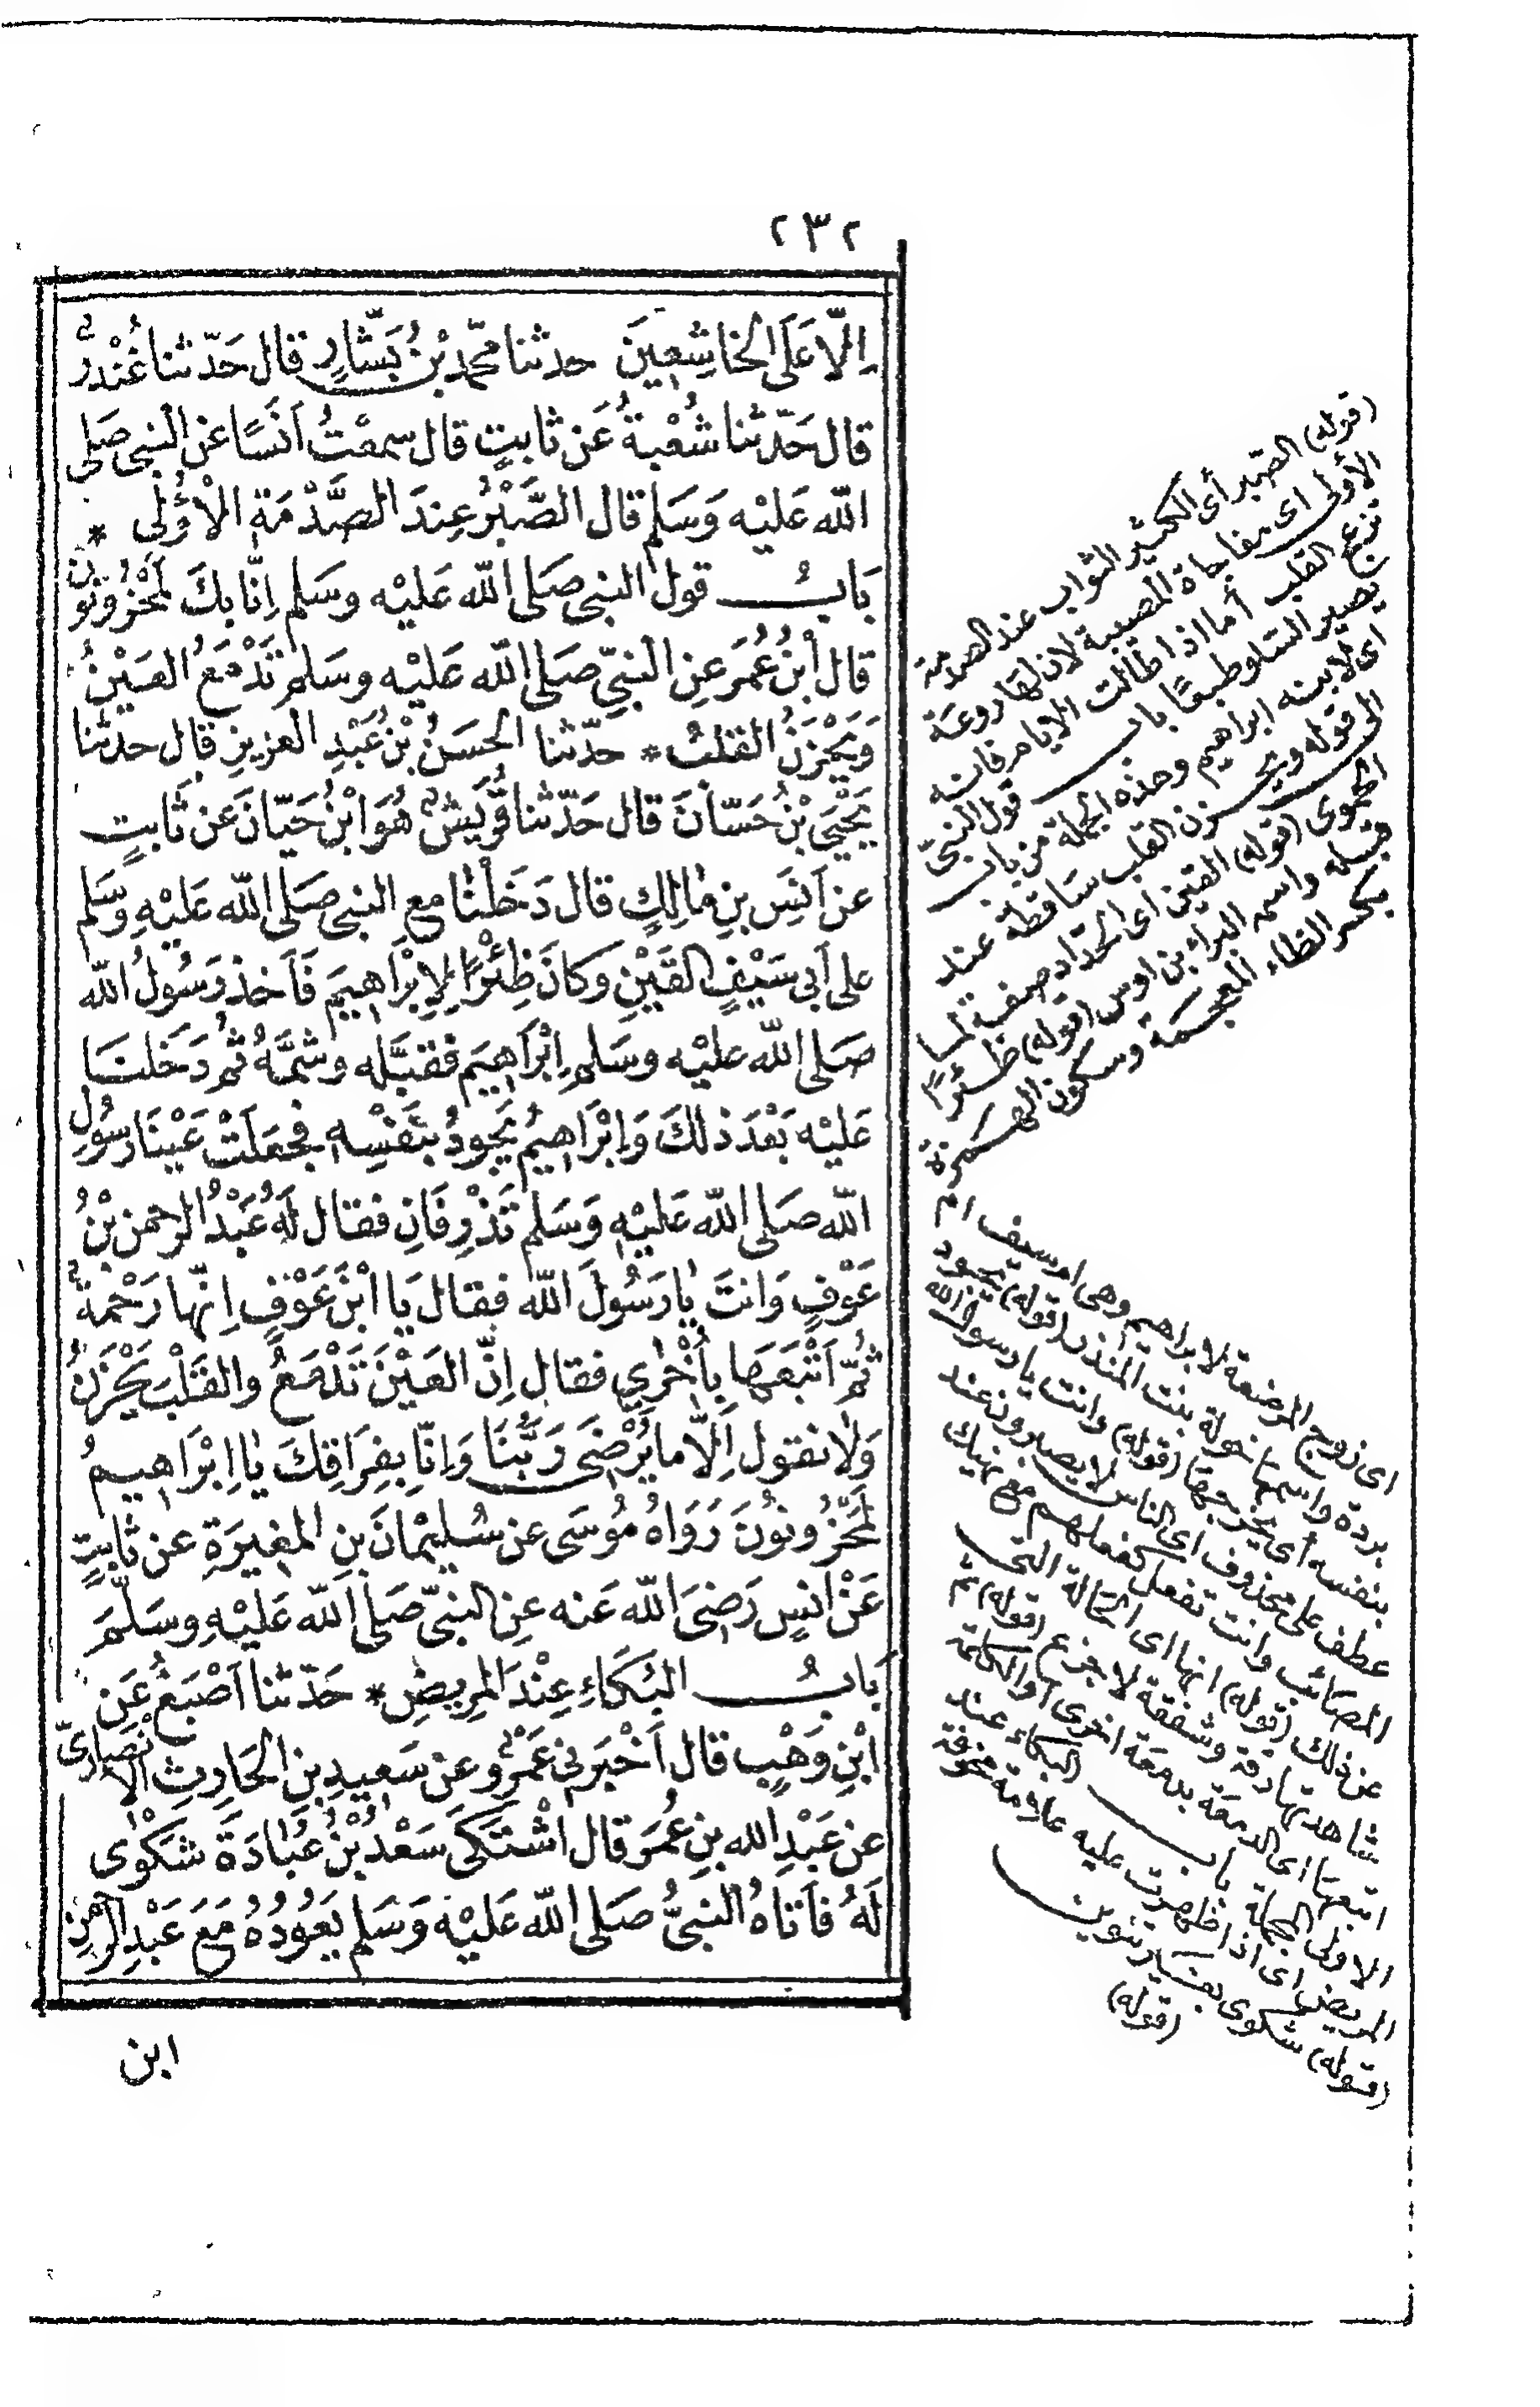 ٢٣٢
اِلَّا عَلَى الخَاشِعِينَ حدثنا محمّد بْنُ بَشَّارٍ قال حَدّثنا غُنْدَرٌ
قال حَدّثنا شُعْبَةُ عَن ثابتٍ قال سمعْتُ اَنَسًا عن النبى صَلى
الله عَليْه وَسَلم قال الصَّبْرُ عِندَ الصَّدْمَةِ الْأُولى *
بَابُ قول النبى صَلى الله عَليْه وسَلم اِنَّا بِكَ لَمَحْزُونُونَ
قال ابْنُ عُمَرَ عنِ النبِّى صَلى الله عَليْه وسَلم تَدْمَعُ العَيْنُ
وَيَحْزَنُ القَلبُ * حَدّثنا الحسَنُ بْنُ عَبْدِ العزيزِ قال حدثنا
يَحْيَى بْنُ حَسَّانَ قال حَدّثنا قُرَيشٌ هُوَ ابْنُ حَيّانَ عَن ثَابتٍ
عن اَنَسِ بنِ مٰالِكٍ قال دَخَلْنٰا مع النبى صَلى الله عَليْهِ وسَّلم
على اَبى سَيْفٍ القَيْنِ وكانَ ظِئْرًا لِإِبْرَاهِيمَ فَاَخذ رَسُولُ الله
صَلى الله عليْه وسَلم اِبْرَاهِيَم فقبَّله وشمَّهُ ثم دَخَلنَا
عَليْه بَعْدَ ذلكَ وَابْرَاهِيمُ يَجودُ بنَفْسِهِ فجعَلَتْ عَيْنَا رسُولِ
الله صَلى الله عَليْهِ وَسَلم تَذْرِفَانِ فقال لَهُ عَبْدُ الرحمن بْنُ
عَوْفٍ وَانتَ يٰا رَسُولَ الله فقال يَا ابْنَ عَوْفٍ اِنّها رَحْمَةٌ
ثُمّ اَتْبَعَهَا بِاُخْرٰى فقال اِنَّ العَيْنَ تَدْمَعُ والقَلْبَ يَحْزَنُ
وَلٰا نقول اِلَّا ما يَرْضَى رَبُّنَا وَاِنّا بِفِرَاقِكَ يٰا اِبْرَاهِيمُ
لَمَحْزُونُونَ رَوَاهُ مُوسَى عن سُليْمٰانَ بنِ المغِيرَةِ عن ثَابتٍ
عَنْ اَنسٍ رَضىَ الله عَنه عنِ النبىّ صَلى الله عَليْهِ وسَلَّمَ
بَابُ البُكَاءِ عِنْدَ المرِيضِ * حَدّثنا اَصْبَغُ عَن
ابْنِ وَهْبٍ قال اَخْبَرنى عَمْرٌو عن سَعِيدِ بنِ الحَارِثِ الاَنْصَارِىّ
عن عَبْدِ الله بنِ عُمَرَ قال اشْتَكَى سَعْدُ بْنُ عُبَادَةَ شَكْوٰى
لَهُ فاَتَاهُ النبىُّ صَلى الله عَليْه وَسَلم يَعُودُهُ مَعَ عَبْدِ الرحمٰنِ
ابن
(قوله) الصبر أى الكثير الثواب عند الصدمة
الأولى اى مفاجاة المصيبة لان لها روعة
تزع القلب أما اذا طالت الايام فانه
يصير السلو طبعًا باب قول النبىّ
اى لابنه ابراهيم وهذه الجملة من باب
الى قوله ويحزن القلب ساقطة عند
الحموى (قوله) القين اى الحدّاد صفة لما
قبله واسمه البراء بن اوس (قوله) ظئرًا
بكسر الظاء المعجمة وسكون الهمزة
اى زوج المرضعة لابراهيم وهى ام سيف ام
بردة واسمها خولة بنت المنذر (قوله) يجود
بنفسه أى يخرجها (قوله) وانت يا رسول الله
عطف على محذوف اى الناس لا يصبرون عند
المصائب وانت تفعل كفعلهم مع نهيك
عن ذلك (قوله) انها اى الحالة التى
شاهدتها رقة وشفقة لا جزع (قوله) ثم
اتبعها اى الدمعة بدمعة اخرى او الكلمة
الاولى الجملة باب البكاء عند
المريض اى اذا ظهرت عليه علامة مخوفة
(قوله) شكوى بغير تنوين
(قوله)